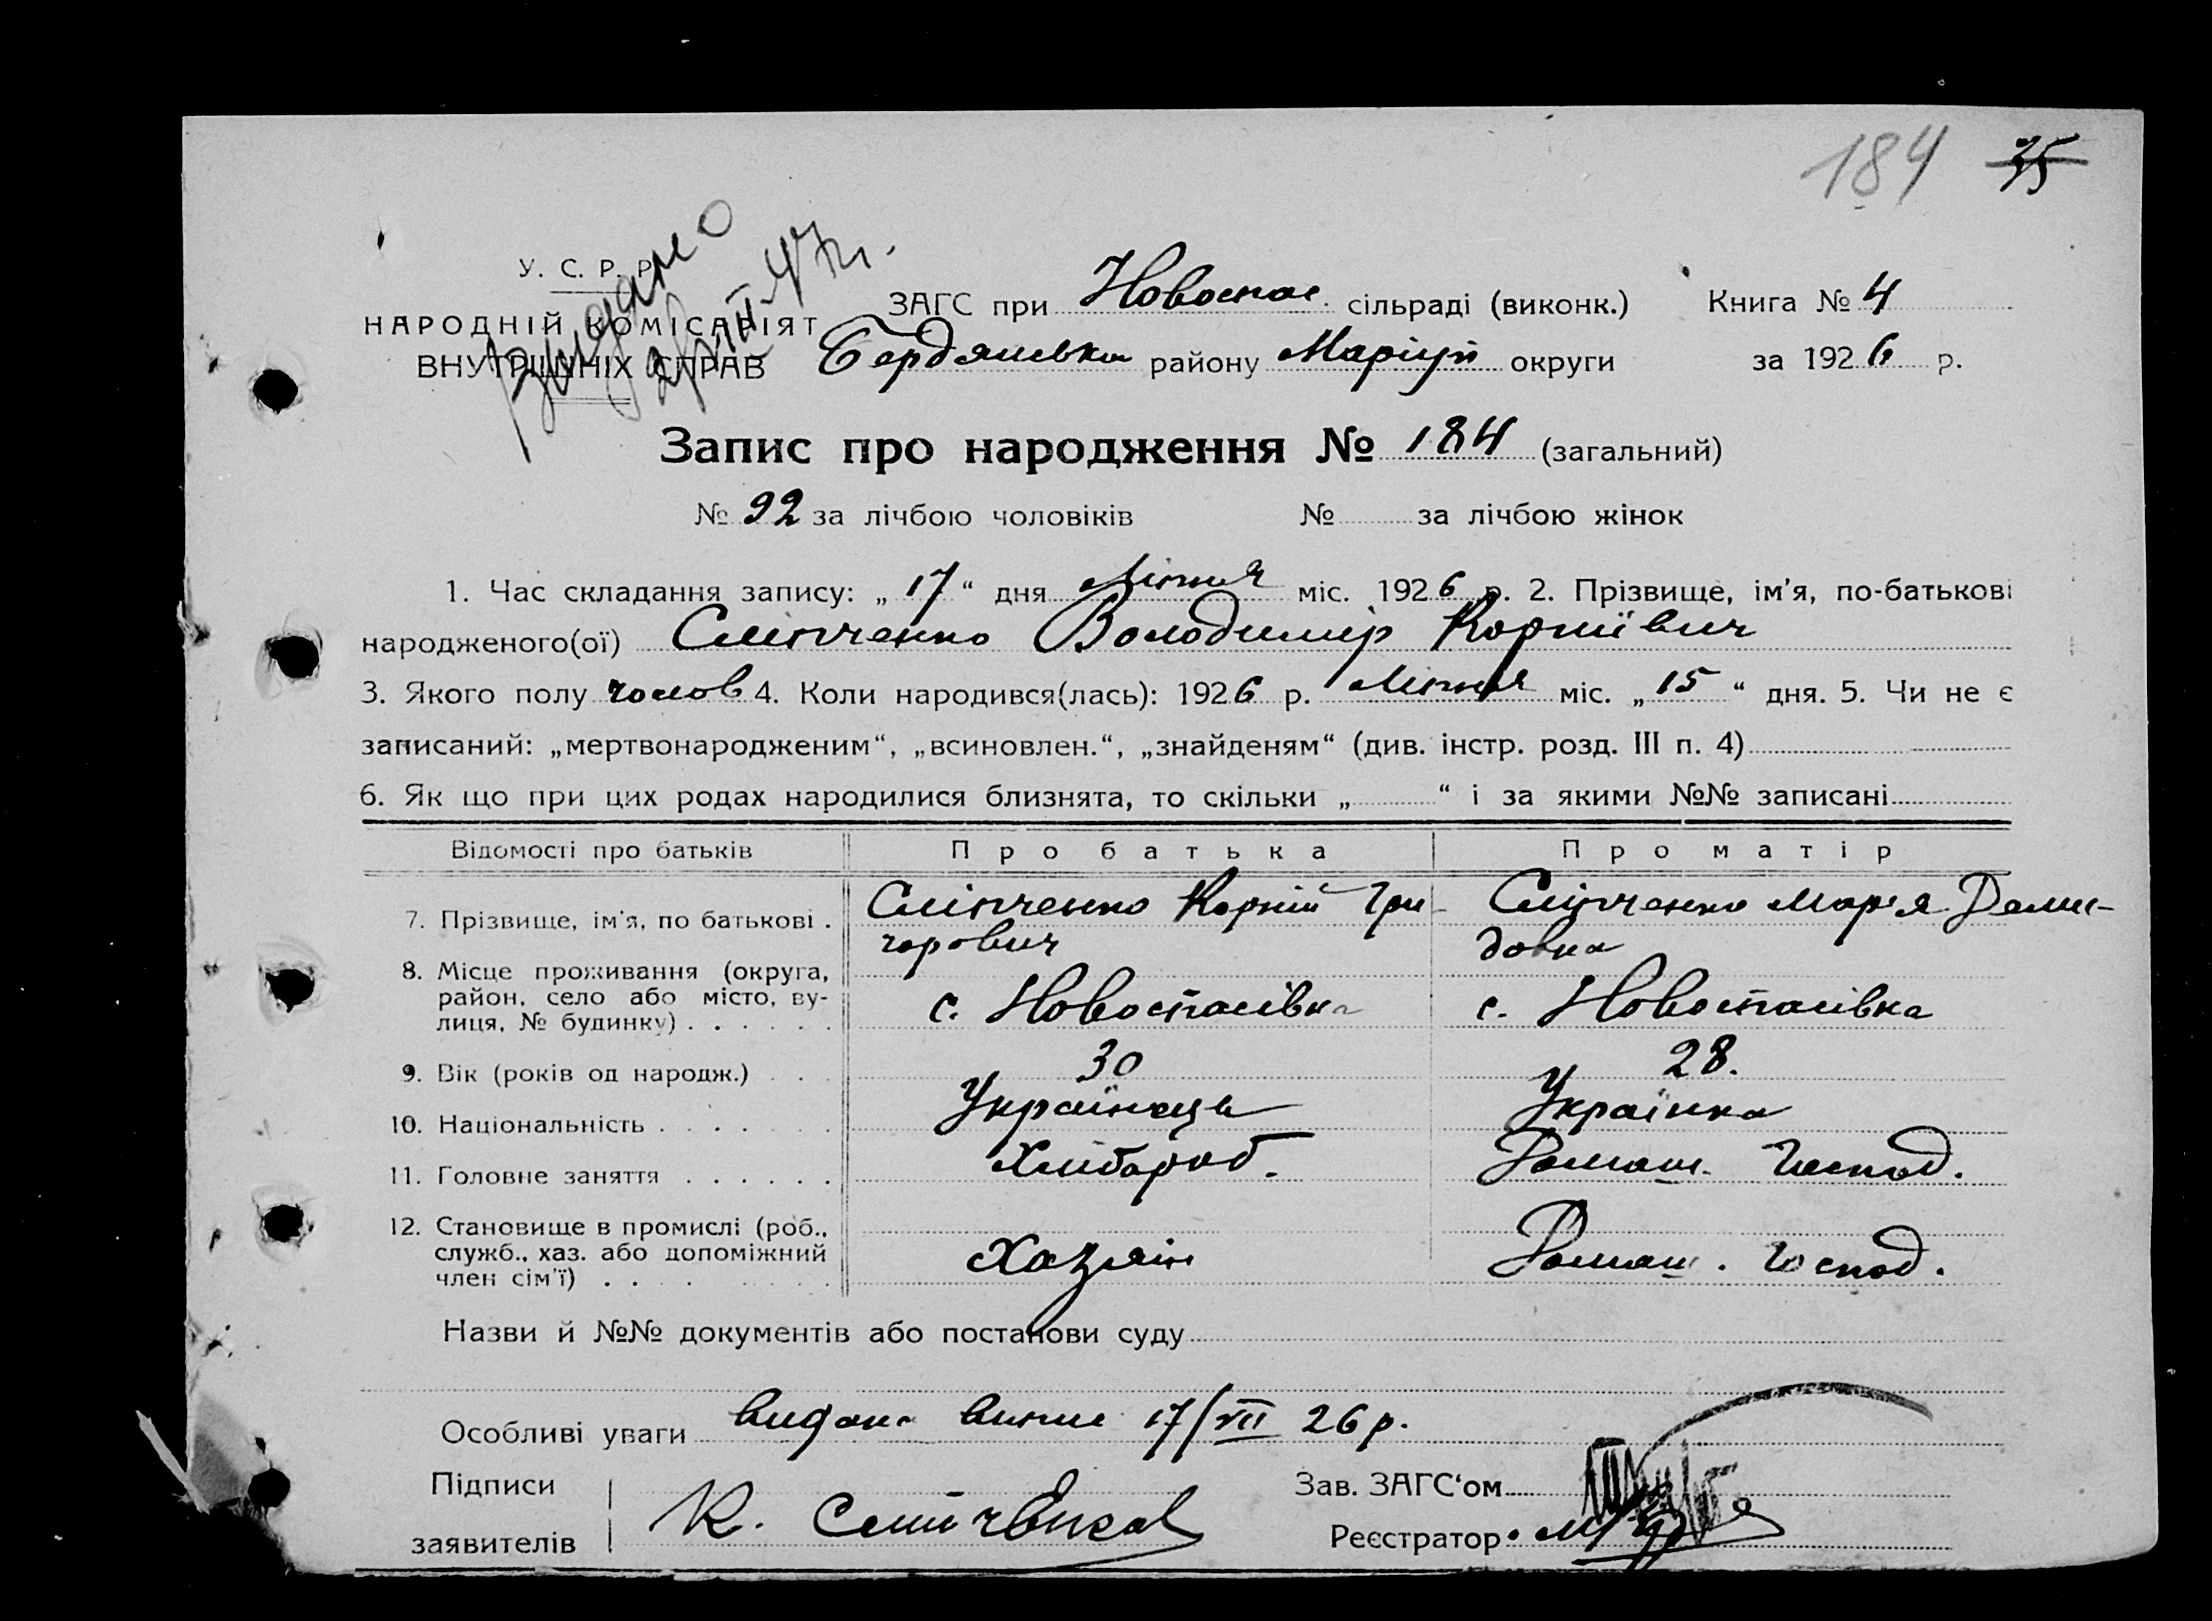 184 35
У. С. Р. Р.
НАРОДНІЙ КОМІСАРІЯТ
ВНУТРІШНІХ СПРАВ
Видано
ЗАГС при Новоспас. сільраді (виконк.) Книга № 4
Бердянська району Маріуп округи за 1926 р.
Запис про народження № 184 (загальний)
№ 92 за лічбою чоловіків № за лічбою жінок
1. Час складання запису: „17“ дня Липня міс. 1926 р. 2. Прізвище, ім'я, по-батькові
народженого(ої) Сліпченко Володимір Корніївич
3. Якого полу чолов 4. Коли народився(лась): 1926 р. Липня міс. „15“ дня. 5. Чи не є
записаний: „мертвонародженим“, „всиновлен.“, „знайденям“ (див. інстр. розд. III п. 4)
6. Як що при цих родах народилися близнята, то скільки „ “ і за якими №№ записані
Відомості про батьків Про батька Про матір
7. Прізвище, ім'я, по батькові . Сліпченко Корній Гри- Сліпченко Марія Деми-
горович довна
8. Місце проживання (округа,
район, село або місто, ву-
лиця, № будинку) . . . . . . с. Новоспасівка с. Новоспасівка
9. Вік (років од народж.) . . . 30 28.
10. Національність . . . . . . . Українець Українка
11. Головне заняття . . . . . . Хлібороб. Домаш. Господ.
12. Становище в промислі (роб.,
служб., хаз. або допоміжний
член сім'ї) . . . Хазяїн Домаш. господ.
Назви й №№ документів або постанови суду
Особливі уваги видано випис 17/VII 26 р.
Підписи
заявителів К. Слипченков
Зав. ЗАГС'ом
Реєстратор